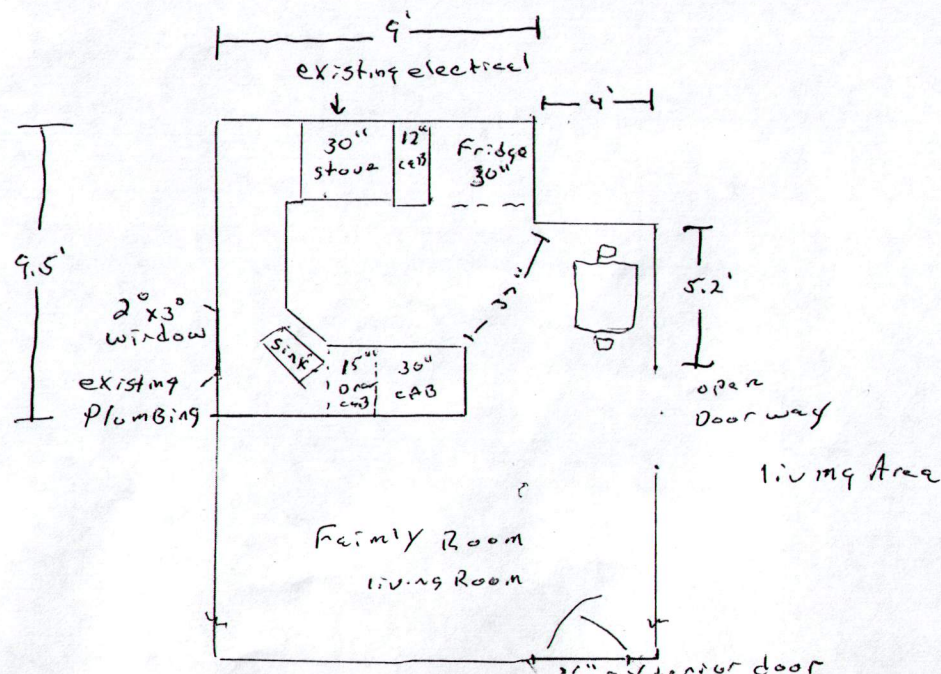 9'
existing electical
4'
30"
Stove
12"
CAB
Fridge
30"
9.5'
5.2'
2° x 3°
window
Sink
15"
CAB
30"
CAB
existing
Plumbing
open
Doorway
living Area
Faimly Room
living Room
door